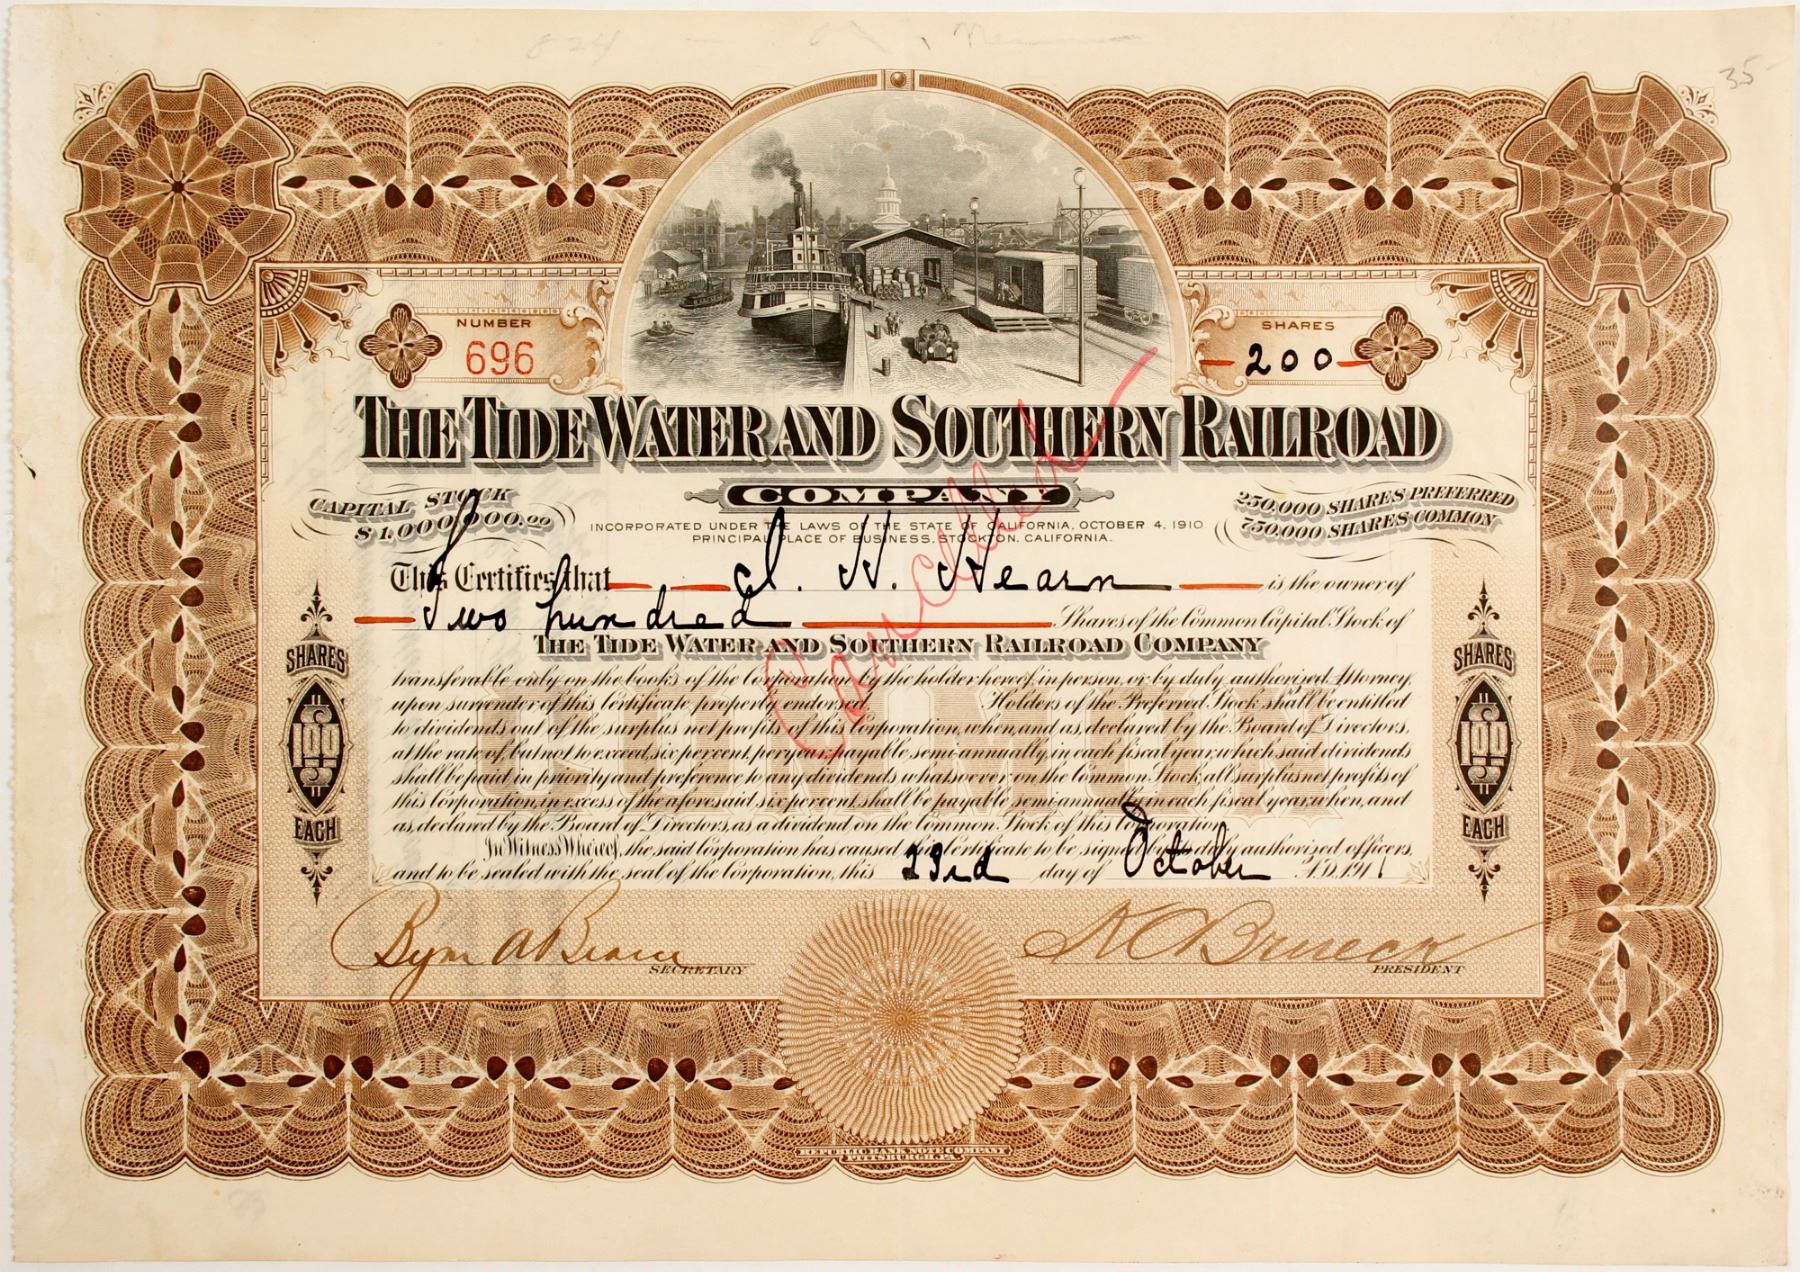 824
35-
NUMBER
696
SHARES
200
THE TIDE WATER AND SOUTHERN RAILROAD
COMPANY
CAPITAL STOCK
$1,000,000.00
INCORPORATED UNDER THE LAWS OF THE STATE OF CALIFORNIA, OCTOBER 4, 1910
PRINCIPAL PLACE OF BUSINESS, STOCKTON, CALIFORNIA.
250,000 SHARES PREFERRED
750,000 SHARES COMMON
This Certifies that I. H. Hearn is the owner of
Two hundred Shares of the Common Capital Stock of
THE TIDE WATER AND SOUTHERN RAILROAD COMPANY
transferable only on the books of the Corporation by the holder hereof, in person, or by duly authorized Attorney,
upon surrender of this Certificate properly endorsed. Holders of the Preferred Stock shall be entitled
to dividends out of the surplus net profits of this Corporation, when, and as, declared by the Board of Directors,
at the rate of, but not to exceed, six per cent, per year, payable semi-annually, in each fiscal year, which said dividends
shall be paid in priority and preference to any dividends whatsoever on the Common Stock, all surplus net profits of
this Corporation, in excess of the aforesaid six per cent, shall be payable semi-annually, in each fiscal year, when, and
as, declared by the Board of Directors, as a dividend on the Common Stock of this Corporation.
In Witness Whereof, the said Corporation has caused this Certificate to be signed by its duly authorized officers,
and to be sealed with the seal of the Corporation, this 23rd day of October A.D. 1911
Cancelled
COMMON
SHARES
$100
EACH
SHARES
$100
EACH
SECRETARY
PRESIDENT
REPUBLIC BANK NOTE COMPANY
PITTSBURGH, PA.